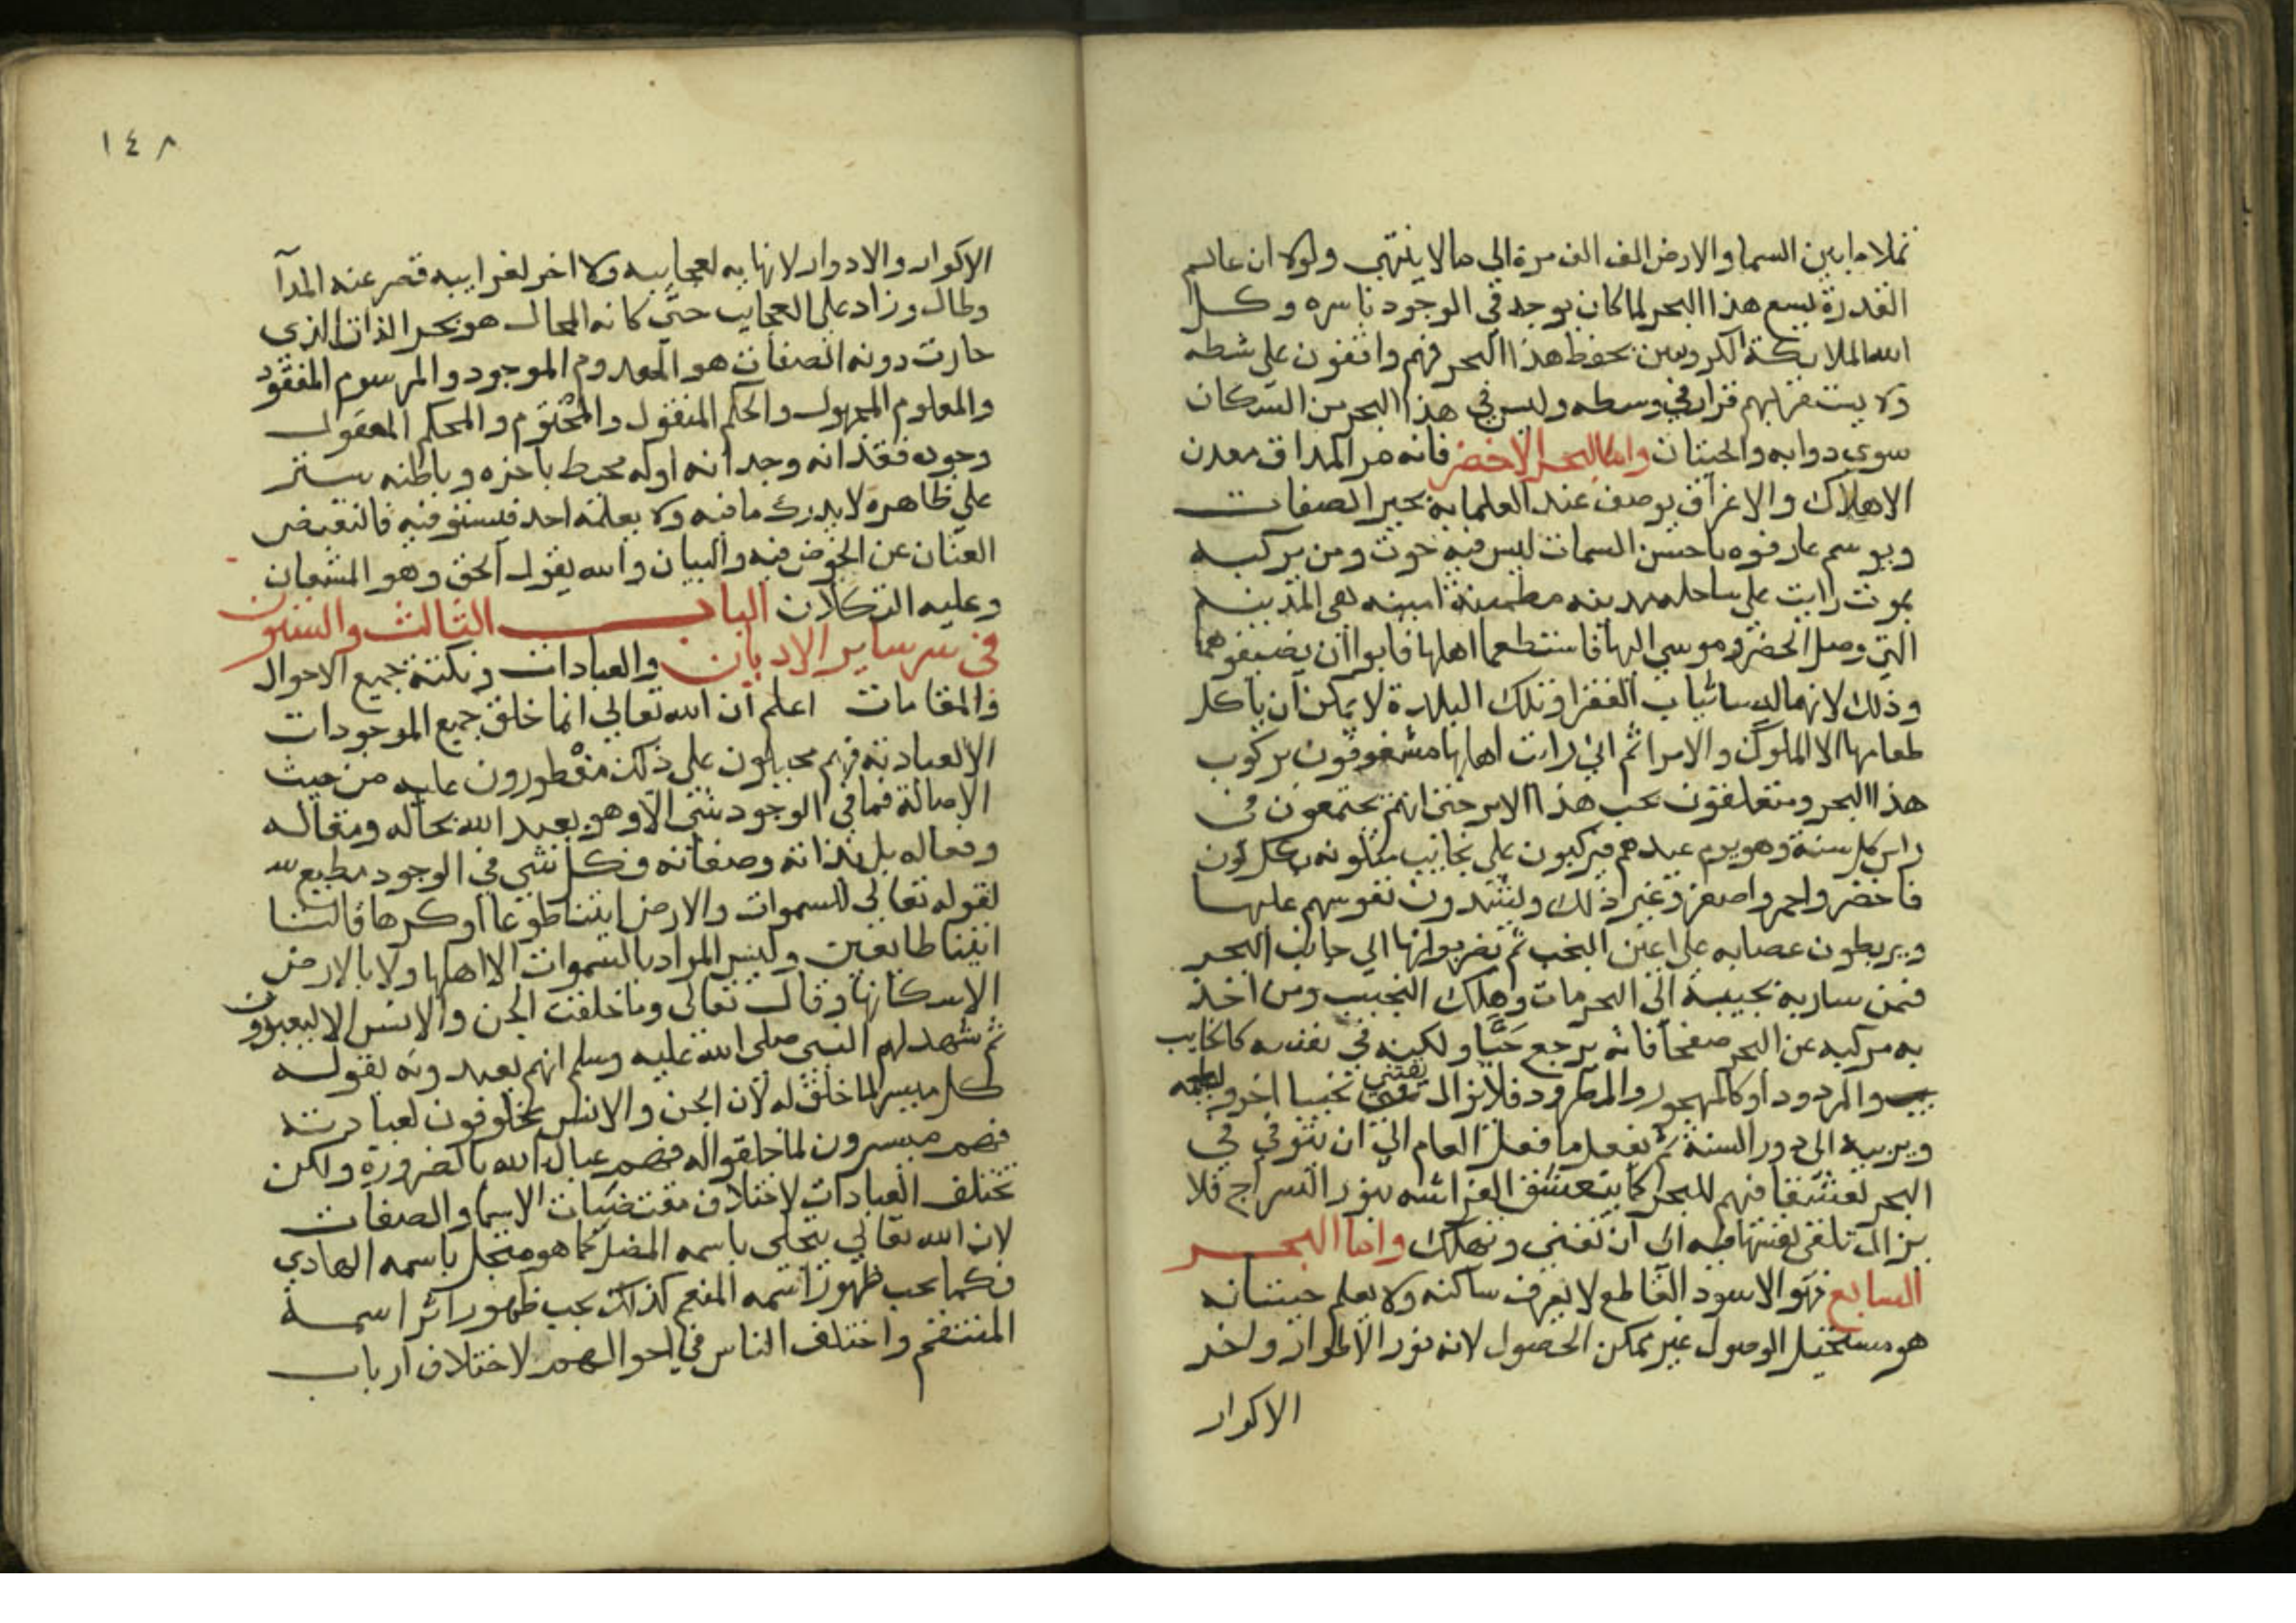 تملا ما بين السما والارض الف الف مرة الى ما لا ينتهي ولولا ان عالم
القدرة يسع هذا البحر لما كان يوجد في الوجود باسره وكل
الله الملائكة الكروبين بحفظ هذا البحر فهم واقفون على شطه
ولا يستقر لهم قرار في وسطه وليس في هذا البحر من السكان
سوى دوابه والحيتان واما البحر الاخضر فانه مر المذاق معدن
الاهلاك والاغراق يوصف عند العلما به بخير الصفات
ويوسم عارفوه باحسن السمات ليس فيه حوت ومن يركبه
يموت رايت على ساحله مدينة مطمينة امينه هي المدينة
التي وصل الخضر وموسي اليها فاستطعما اهلها فابوا ان يضيفوهما
وذلك لانهما لبسا ثياب الفقرا وتلك البلدة لا يمكن ان ياكل
طعامها الا الملوك والامرا ثم اني رايت اهلها مشغوفون بركوب
هذا البحر ومتعلقون بحب هذا الامر حتى انهم يجتمعون في
راس كل سنة وهو يوم عيدهم فيركبون على نجايب متلونه بكل لون
فاخضر واحمر واصفر وغير ذلك ويشدون نفوسهم عليها
ويربطون عصابه على اعين النجب ثم يقربوانها الى جانب البحر
فمن سار به نجيبه الى البحر مات وهلك النجيب ومن اخذ
به مركبه عن البحر صفحا فانه يرجع حيا ولكنه في نفسه كالخايب
والمردود او كالمهجور والمطرود فلا يزال يقتني نجيبا اخر ويعلمه
ويربيه الى دور السنة ثم يفعل ما فعل العام الى ان يتوفي في
البحر تعشقا منهم للبحر كما يتعشق الفراشه بنور السراج فلا
يزال تلقي نفسها فيه الى ان تفني وتهلك واما البحر
السابع فهو الاسود القاطع لا يعرف ساكنه ولا يعلم حيتانه
هو مستحيل الوصول غير ممكن الحصول لانه نور الاطوار واخر
الاكوار
١٤٨
الاكوار والادوار لا نهايه لعجايبه ولا اخر لغرايبه قصر عنه المدا
وطال وزاد على العجايب حتى كانه المحال هو بحر الذات الذي
حارت دونه الصفات هو المعدوم الموجود والمرسوم المفقود
والمعلوم المجهول والحكم المنقول والمختوم والمحكم المعقول
وجوده فقدانه وجدانه اوله محيط باخره وباطنه يستر
على ظاهره لا يدرك ما فيه ولا يعلمه احد فيستوفيه فالنقبض
العنان عن الخوض فيه والبيان والله يقول الحق وهو المستعان
وعليه التكلان الباب الثالث والستون
في سر ساير الاديان والعبادات ونكتة جميع الاحوال
والمقامات اعلم ان الله تعالى انما خلق جميع الموجودات
لعبادته فهم مجبولون على ذلك مفطورون عليه من حيث
الاصالة فما في الوجود شي الا وهو يعبد الله بحاله ومقاله
وفعاله بل بذاته وصفاته فكل شي في الوجود مطيع لله
لقوله تعالى للسموات والارض ايتيا طوعا او كرها قالتا
اتينا طايعين وليس المراد بالسموات الا اهلها ولا بالارض
الا سكانها وقال تعالى وما خلقت الجن والانس الا ليعبدون
ثم شهد لهم النبي صلى الله عليه وسلم انهم يعبدونه بقوله
كل ميسر لما خلق له لان الجن والانس مخلوقون لعبادته
فهم ميسرون لما خلقوا له فهم عباد الله بالضرورة ولكن
تختلف العبادات لاختلاف مقتضيات الاسما والصفات
لان الله تعالى يتجلى باسمه المضل كما هو متجل باسمه الهادي
فكما يجب ظهور اسمه المنعم كذلك يجب ظهور اثر اسمه
المنتقم واختلف الناس في احوالهم لاختلاف ارباب